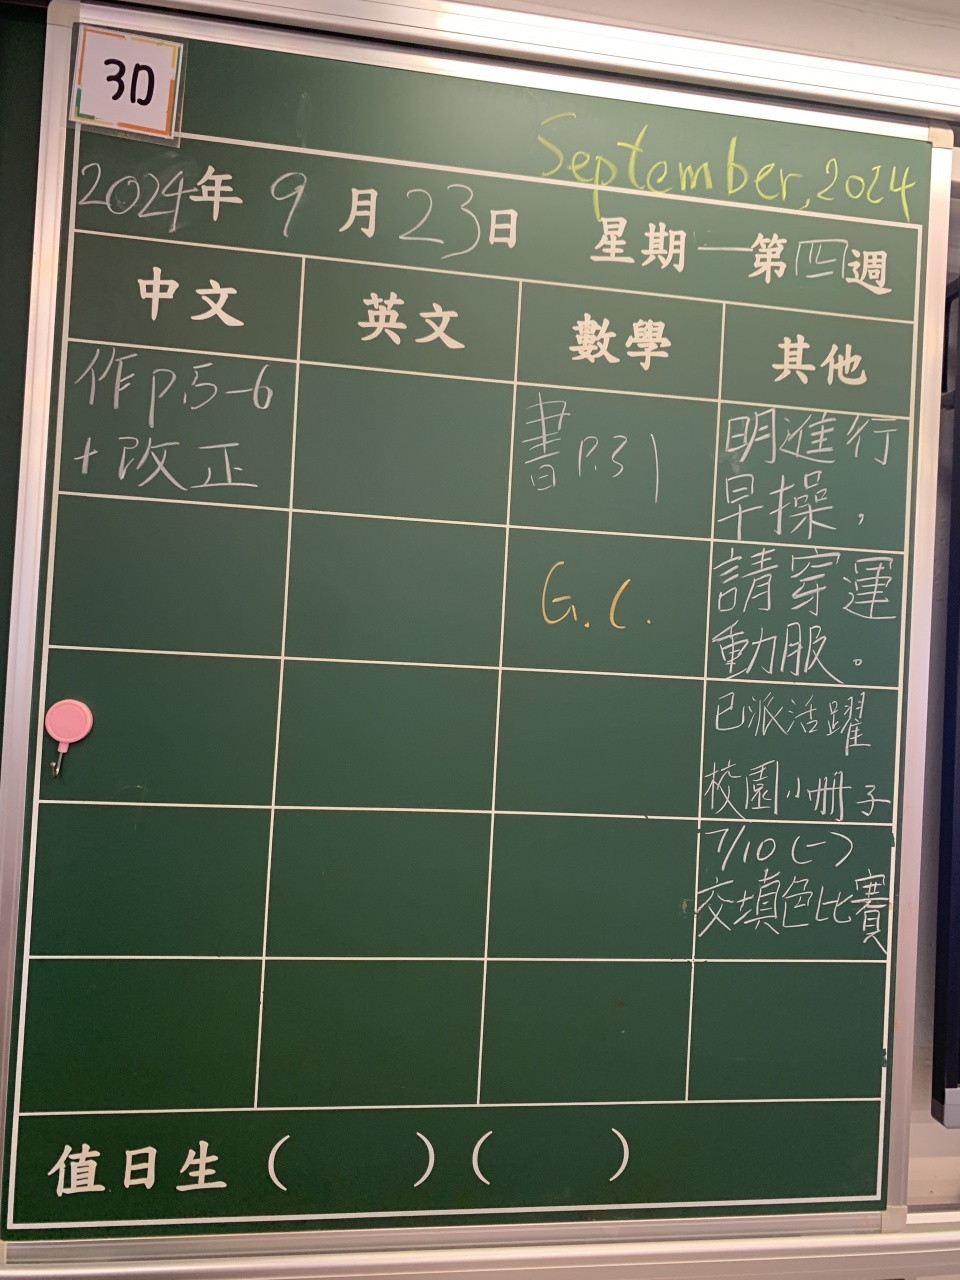 3D
September, 2024
2024年9月23日 星期一第四週
中文 英文 數學 其他
作P.5-6
+改正
書P.31
G.C.
明進行
早操，
請穿運
動服。
已派活躍
校園小冊子
7/10(一)
交填色比賽
值日生( )( )